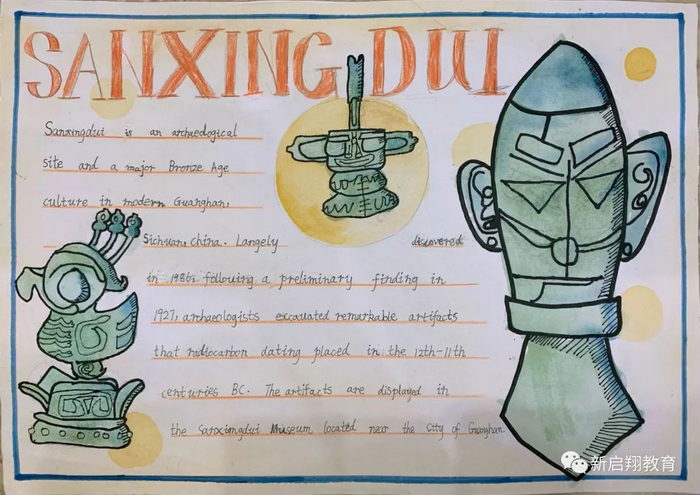 SANXING DUI
Sanxingdui is an archaeological
site and a major Bronze Age
culture in modern Guanghan,
Sichuan, China. Langely discovered
in 1986, following a preliminary finding in
1927, archaeologists excavated remarkable artifacts
that radiocarbon dating placed in the 12th-11th
centuries BC. The artifacts are displayed in
the Sanximgdui Museum located near the city of Guanghan.
新启翔教育